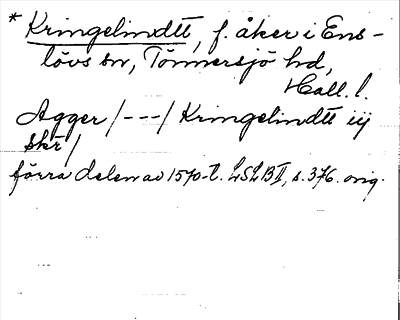 * Kringelindtt, f. åker i Ens-
lövs sn, Tönnersjö hd,
Hall. l.
Agger /---/ Kringelindtt iij
skr /
förra delen av 1570-t. LSLB II, s. 376. orig.